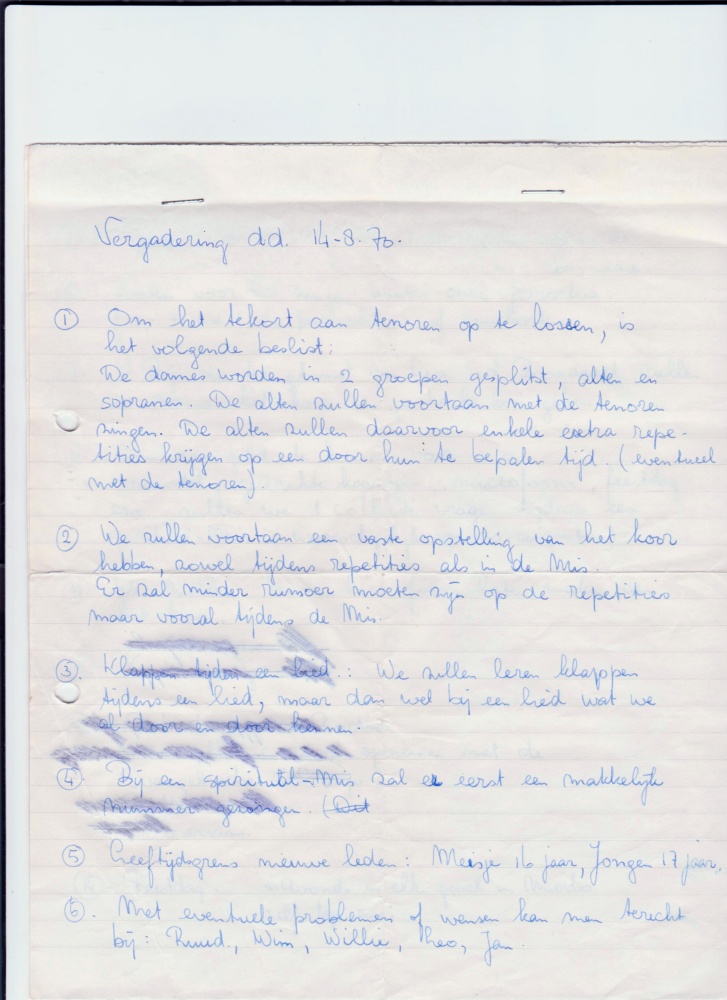 Vergadering d.d. 14-8-70.
① Om het tekort aan tenoren op te lossen, is
het volgende beslist:
De dames worden in 2 groepen gesplitst, alten en
sopranen. De alten zullen voortaan met de tenoren
zingen. De alten zullen daarvoor enkele extra repe-
tities krijgen op een door hun te bepalen tijd. (eventueel
met de tenoren).
② We zullen voortaan een vaste opstelling van het koor
hebben, zowel tijdens repetities als in de Mis.
Er zal minder rumoer moeten zijn op de repetities
maar vooral tijdens de Mis.
③. Klappen tijdens een lied.: We zullen leren klappen
tijdens een lied, maar dan wel bij een lied wat we
al door en door kennen.
④. Bij een spiritual-Mis zal er eerst een makkelijk
nummer gezongen. (Dit
⑤ Leeftijdsgrens nieuwe leden: Meisje 16 jaar, Jongen 17 jaar.
⑥. Met eventuele problemen of wensen kan men terecht
bij: Ruud., Wim, Willie, Theo, Jan.